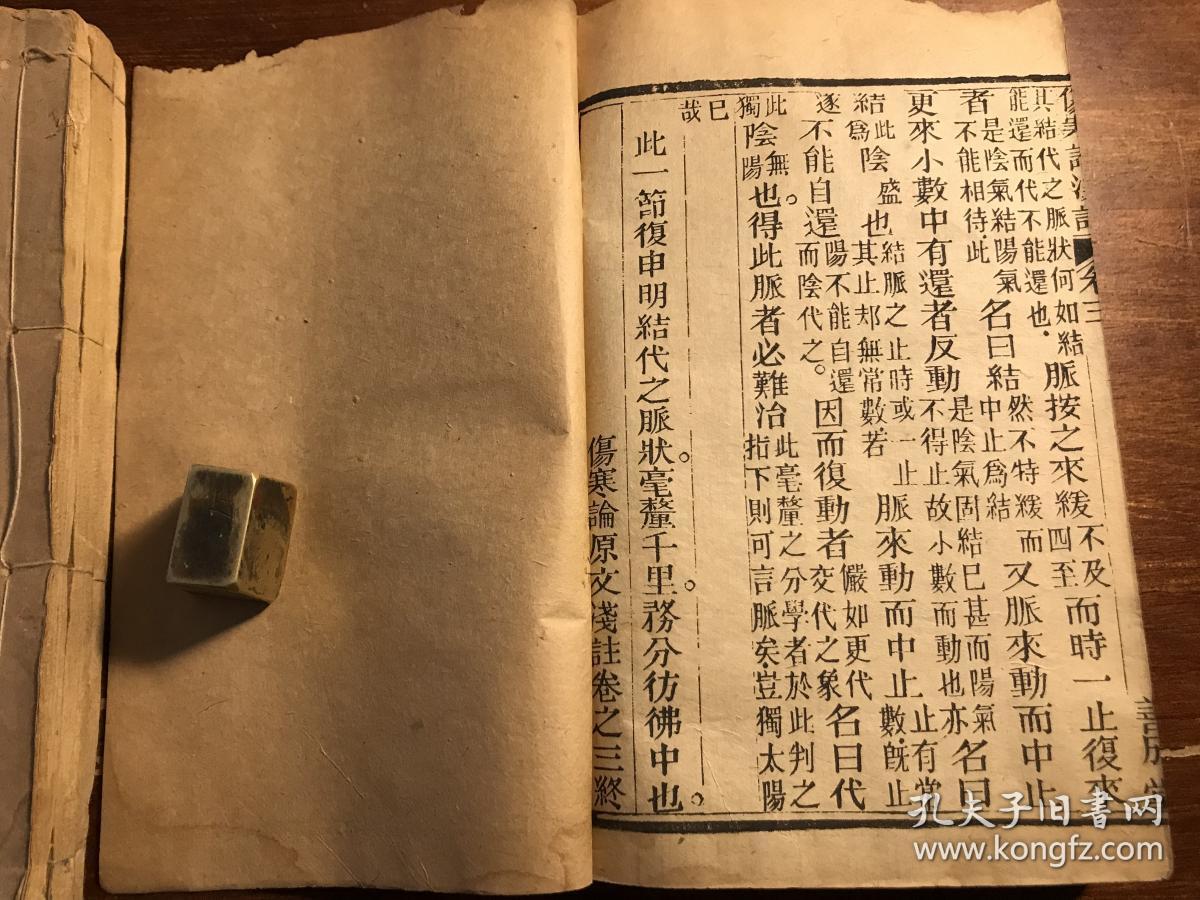 傷寒論淺註 卷三
其結代之脈狀何如結能還而代不能還也脈按之來緩不及四至而時一止復來
者是陰氣結陽氣不能相待此名曰結然不特緩而中止為結又脈來動而中止
更來小數中有還者反動是陰氣固結已甚而陽氣不得止故小數而動也亦名曰
結此為陰盛也結脈之止時或一止其止却無常數若脈來動而中止止有常數既止
遂不能自還陽不能自還而陰代之。因而復動者儼如更代交代之象名曰代
此獨陰無陽。也得此脈者必難治此毫釐之分學者於此判之指下則可言脈矣豈獨太陽
已哉
此一節復申明結代之脈狀。毫釐千里。務分彷彿中也。
傷寒論原文淺註卷之三終
孔夫子旧书网
www.kongfz.com